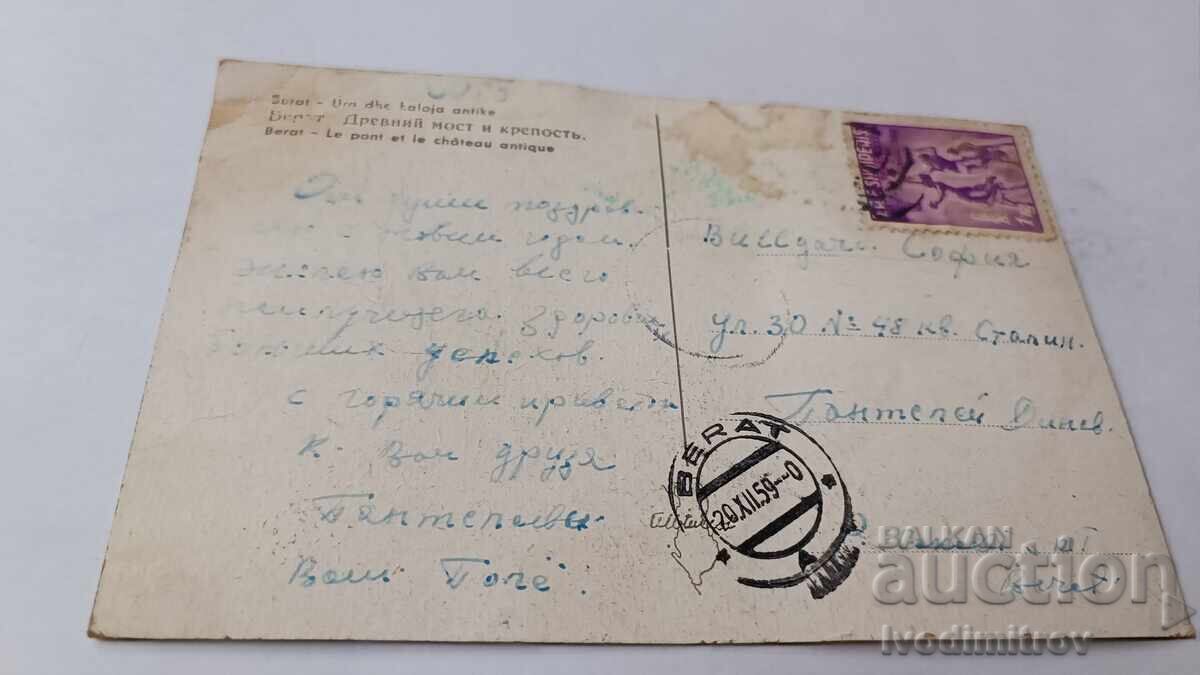 Berat - Ura dhe kaloja antike
Берат - Древний мост и крепость.
Berat - Le pont et le château antique
От души поздров.
новим годом.
желею вам всего
неилучшего здоровия
успехов.
с горячим приветом
к вам друзя
Пантелеевы
Ваш Гоче
София
ул. 30 № 48 кв. Сталин.
Пантелей Динев.
BERAT
20.XII.59--0
BALKAN
auction
Ivodimitrov